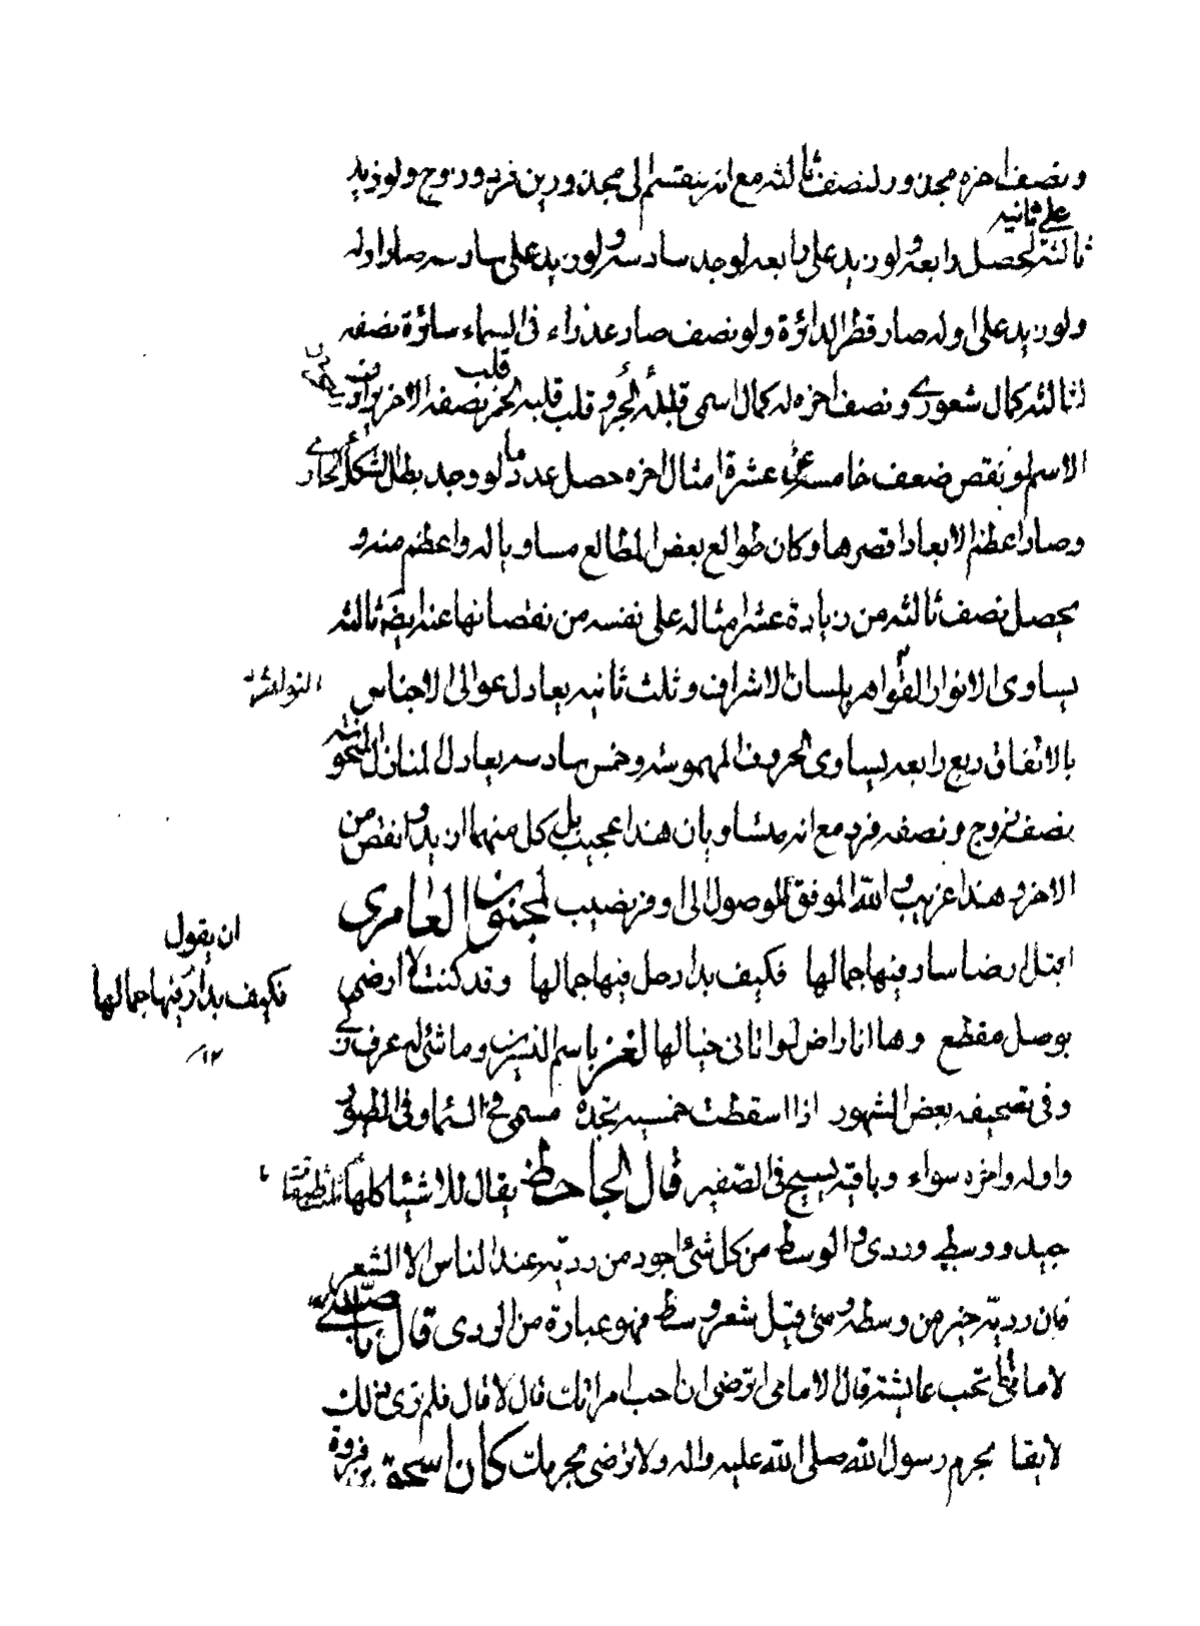 ونصف اخره مجذور لنصف ثالثه مع انه ينقسم الى مجذورين فرد وزوج ولو زيد
على ثانيه
ثالثه لحصل رابعه ولو زيد على رابعه لوجد سادسه ولو زيد على سادسه صار اوله
ولو زيد على اوله صار قطر الدائرة ولو نصف صار عذراء فى السماء سائرة نصفه
لثالثه كمال شعورى ونصف اخره له كمال اسمى قلب قلبه نصفه الاخر
الاسم لو نقص ضعف خامسه عن عشرة امثال اخره حصل عدد ما لو وجد بطل الشكل الحمارى
وصار اعظم الابعاد اقصرها وكان طوالع بعض المطالع مساويا له واعظم منه و
يحصل نصف ثالثه من زيادة عشر امثاله على نفسه من نقصانها عنه ايضا ثالثه
يساوى الانوار القواهر بلسان الاشراق وثلث ثانيه يعادل عوالى الاجناس
بالاتفاق ربع رابعه يساوى الحروف المهموسة وخمس سادسه يعادل المنازل المنحوسة
نصفه زوج ونصفه فرد مع انه متساويان هذا عجيب بل كل منهما ازيد وانقص من
الاخر وهذا غريب والله الموفق للوصول الى اوفر نصيب لمجنون العامرى
ابتل رضا سار فيها جمالها فكيف بدا رحل فيها جمالها وقد كنت لا ارضى
بوصل مقطع وها انا راض لو اتانى خيالها لغز باسم النسرين وما شئ له عرف ذكى
وفى تصحيفه بعض الشهور اذا اسقطت خمسيه تجده مسمى فى السماء وفى الطيور
واوله واخره سواء وباقيه يسبح فى الصفير قال الجاحظ يقال للاشياء كلها ثلث طبقات
جيد ووسط وردى والوسط من كل شئ اجود من رديه عند الناس الا الشعر
فان رديه خير من وسطه ومتى قيل شعر وسط فهو عبارة من الردى قال ناصبى
لامامى اتحب عايشة قال الامامى اترضى ان احب امراتك قال لا قال فلم ترى ذلك
لايقا بحرم رسول الله صلى الله عليه واله ولا ترضى بحرمك كان اسحق بن فروة
ان يقول
فكيف بدار فيها جمالها
١٢